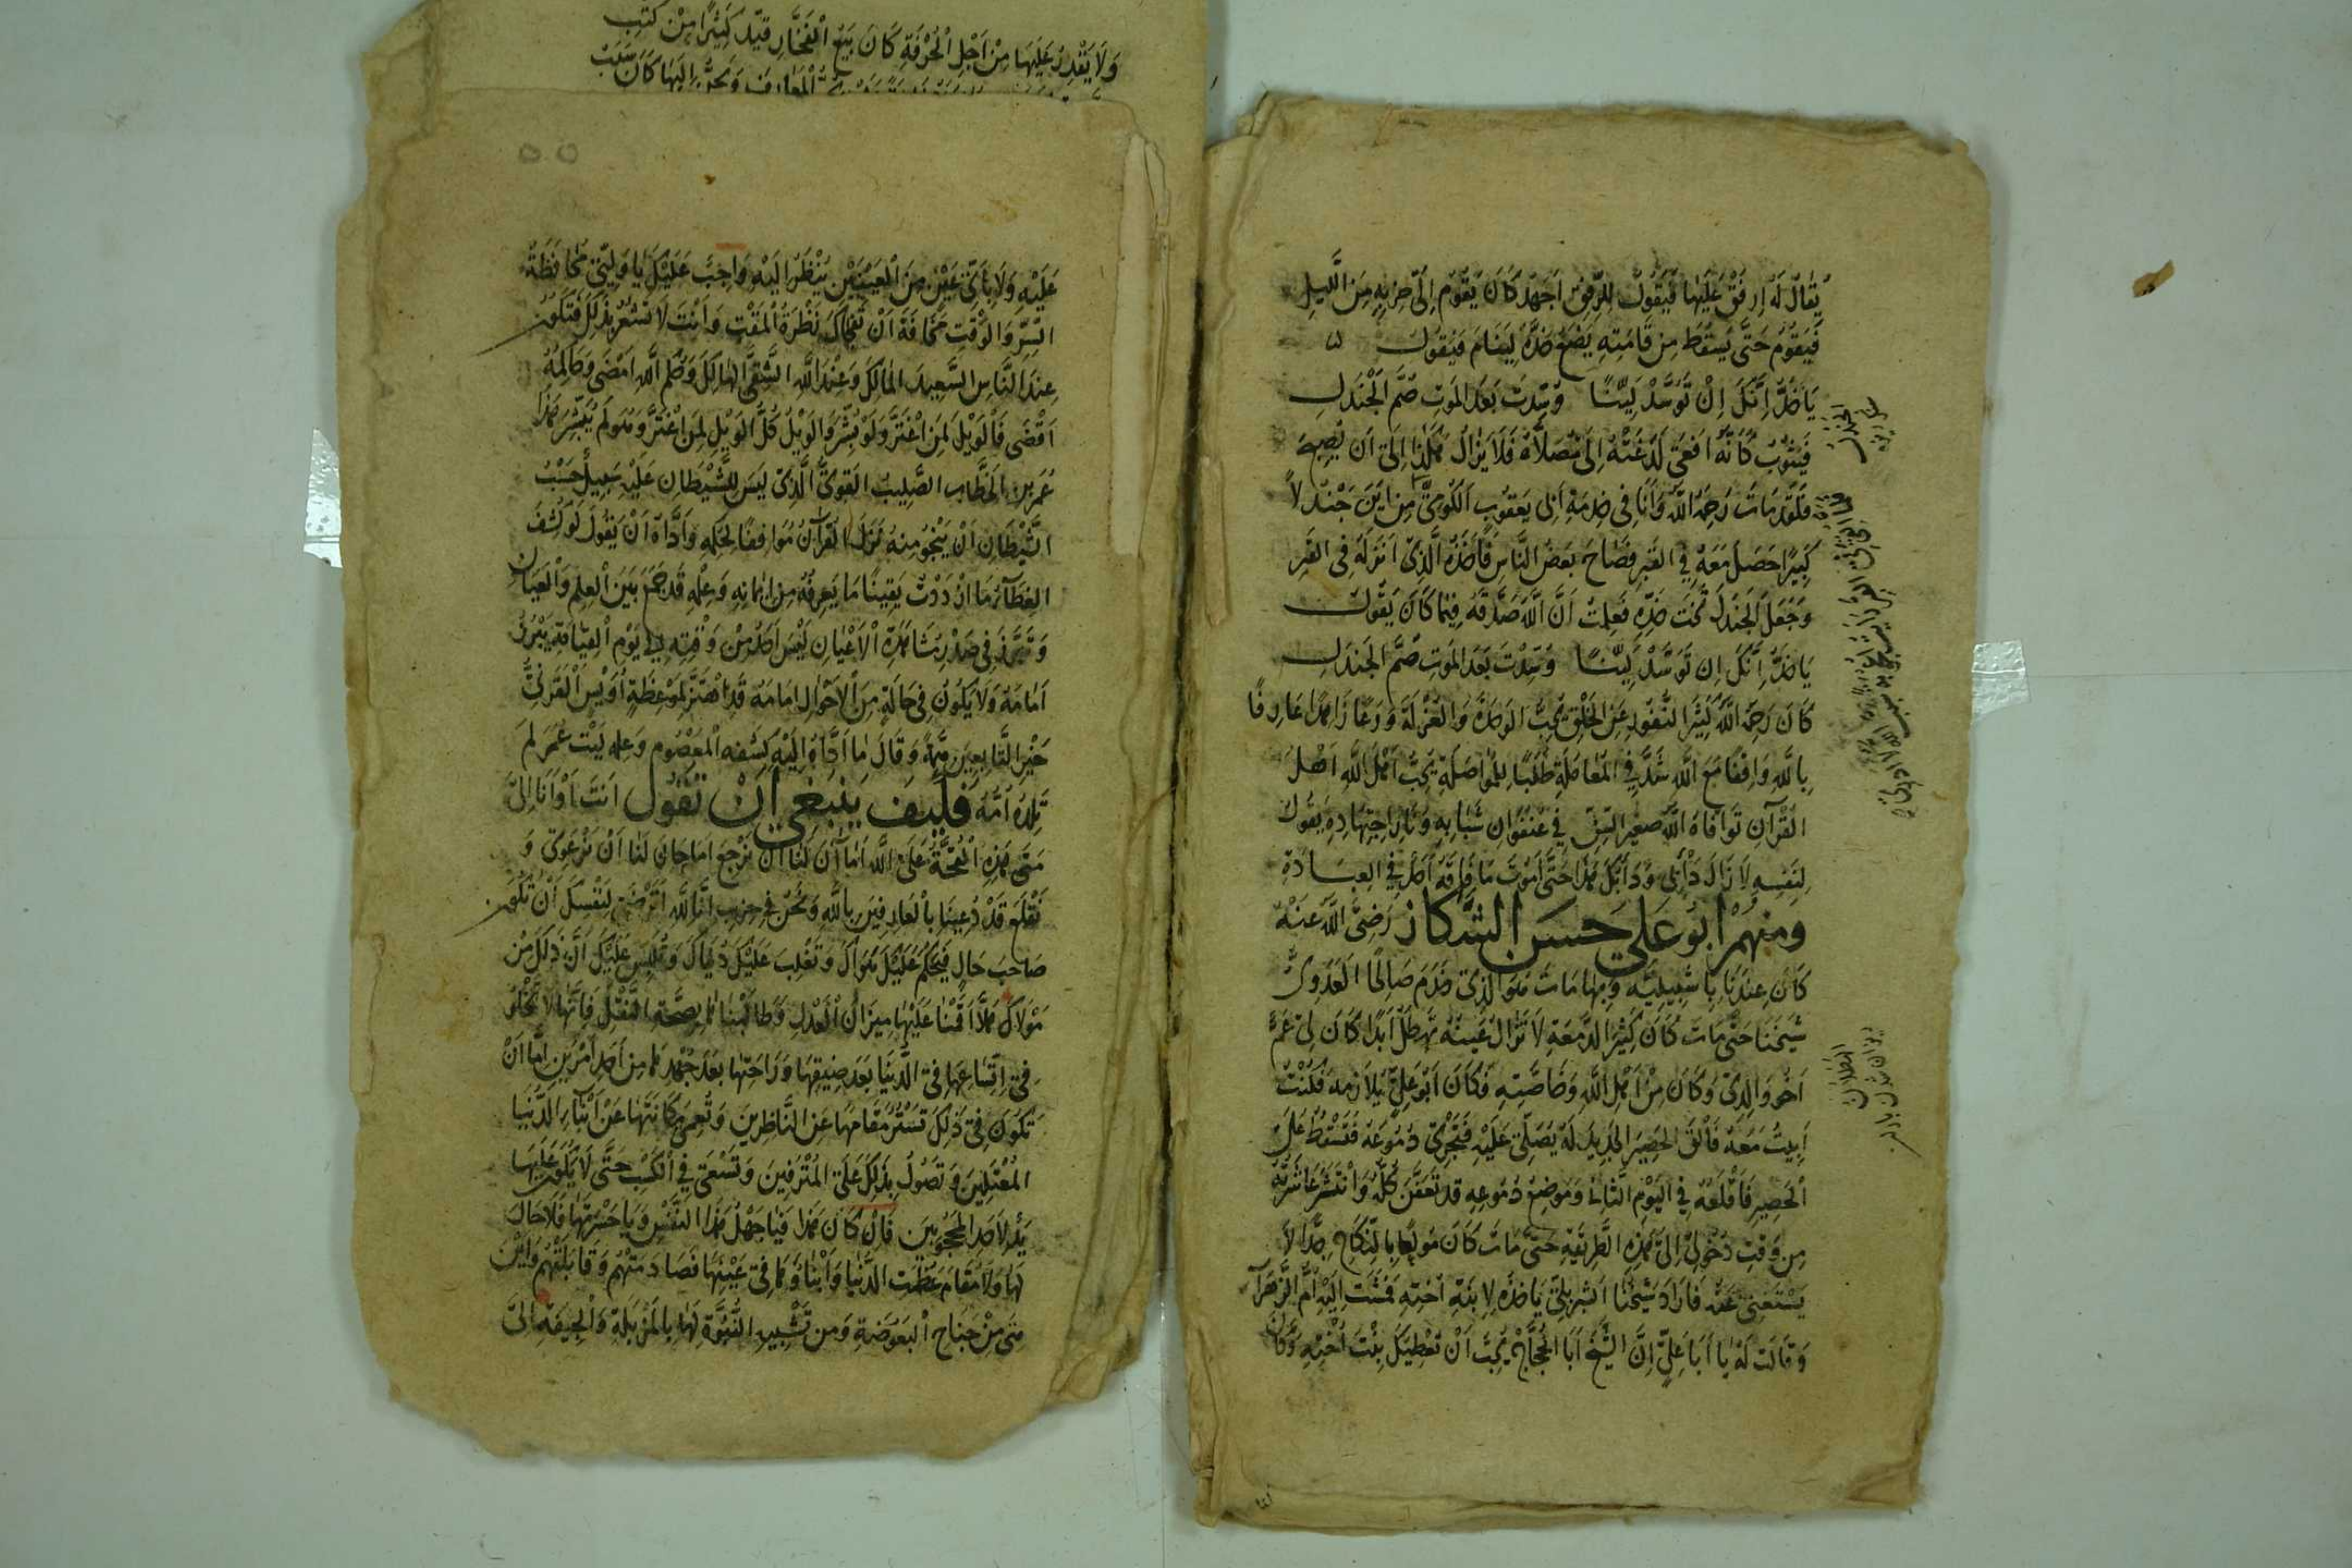 يُقَالُ لَهُ اِرفَقْ عَلَيْهَا فَيَقُولُ لِلرِّفقِ اَجهَدُ كَانَ يَقُومُ اِلَى حِزبِهِ مِنَ الَّليلِ
فَيَقُومُ حَتَّى يَسقُطَ مِن قَامَتِهِ يَضَعُ خَدَّهُ لِيَنَامَ فَيَقُولُ
يَا خَدُّ اِنَّكَ اِنْ تَوَسَّدْ لَيِّنًا وُسِّدتَ بَعدَ المَوتِ صُمَّ الجَندَلِ
فَيَثُوبُ كَاَنَّهُ اَفعَى لَدَغَتهُ اِلَى مُصَلَّاهُ فَلَا يَزَالُ هٰكَذَا اِلَى اَن يُصبِحَ
فَلَقَد مَاتَ رَحِمَهُ اللّٰهُ وَاَنَا فِى خِدمَةِ اَبِى يَعقُوبَ الكُومِىِّ مِن اَينَ جَندلاً
كَبِيرًا حَصَلَ مَعَهُ فِي القَبرِ فَصَاحَ بَعضُ النَّاسِ فَاَخَذَهُ الَّذِى اَنزَلَهُ فِى القَبرِ
وَجَعَلَ الجَندَلَ تَحتَ خَدِّهِ فَعَلِمتُ اَنَّ اللّٰهَ صَدَّقَهُ فِيمَا كَانَ يَقُولُ
يَا خَدُّ اِنَّكَ اِن تَوَسَّدْ لَيِّنًا وُسِّدْتَ بَعدَ المَوتِ صُمَّ الجَندَلِ
كَانَ رَحِمَهُ اللّٰهُ كَثِيرَ النُّفُورِ عَنِ الخَلقِ يُحِبُّ الوَحدَةَ وَالعُزلَةَ وَرَعًا زَاهِدًا عَارِفًا
بِاللّٰهِ وَاقِفًا مَعَ اللّٰهِ شَدَّ فِي المُعَامَلَةِ طَلَبًا لِلمُوَاصَلَةِ يُحِبُّ اَهْلَ اللّٰهِ اَهلَ
القُرْآنِ تَوَافَاهُ اللّٰهُ صَغِيرَ السِّنِّ فِي عُنفُوَانِ شَبَابِهِ وَنَارِ اجتِهَادِهِ يَقُولُ
لِنَفسِهِ لَا زَالَ دَأْبِى وَدَأبُكِ هٰذَا حَتَّى اَمُوتَ مَا فَاقَهُ اَحَدٌ فِي العِبَادَةِ
وَمِنهُم اَبُو عَلِي حَسَن الشَّكَّاز رَضِىَ اللّٰهُ عَنْهُ
كَانَ عِندَنَا بِاشبِيلِيَّه وَبِهَا مَاتَ هُوَ الَّذِى خَدَمَ صَالِحًا العَدَوِىَّ
شَيخَنَا حَتَّى مَاتَ كَانَ كَثِيرَ الدَّمعَةِ لَا تَزَالُ عَينُهُ تَهطِلُ اَبَدًا كَانَ لِى عَمٌّ
اَخُو وَالِدِى وَكَانَ مِنْ اَهْلِ اللّٰهِ وَخَاصَّتِهِ فَكَانَ اَبُو عَلِىٍّ يُلَازِمه فَكُنْتُ
اَبِيتُ مَعَهُ فَاَلقَى الحَصِيرَ الجَدِيدَ لَهُ يُصَلِّى عَلَيْهِ فَتَجْرِى دُمُوعُهُ فَتَسْقُطُ عَلَى
الحَصِيرِ فَاَقْلَعُهُ فِي اليَوْمِ الثَّانِى وَمَوضِعُ دُمُوعِهِ قَد تَعَفَّنَ كُلُّهُ وَانتَشَرَ عَاشَرتُهُ
مِن وَقتِ دُخُولِى اِلَى هٰذِهِ الطَّرِيقَةِ حَتَّى مَاتَ كَانَ مُولَعًا بِالنِّكَاحِ جِدًّا لاَ
يَسْتَغنِى عَنهُ فَاَرَادَ شَيخُنَا الشبربلى يَاخُذُهُ لِابنَةِ اُختِهِ فَمَشَت اِلَيْهِ اُمُّ الزَّهرَآءِ
وَقَالَت لَهُ يَا اَبَا عَلِىٍّ اِنَّ الشَّيخَ اَبَا الحَجَّاجِ يُحِبُّ اَنْ تُعْطِيَكَ بِنْتَ اُخْتِهِ وَكَانَ
وَلَا يَقْدِرُ عَلَيهَا مِنْ اَجْلِ الْحُرْفَةِ كَانَ يَبِيعُ الْفَخَّارَ قَيَّدَ كَثِيرًا مِنْ كُتُبِ
عَلَيْهِ وَلَا بِاَىِّ عَيْنٍ مِنَ الْعَيْنَيْنِ يُنْظَرُ اِلَيْهِ وَاجِبٌ عَلَيْكَ يَا وَلِيِّى مُحَافَظَةُ
السِّرِّ وَالوَقْتِ مَخَافَةَ اَنْ تَفجَاكَ نَظْرَةُ الْمَقْتِ وَاَنْتَ لَا تَشعُرُ بِذٰلِكَ فَتَكُونَ
عِندَ النَّاسِ السَّعِيدَ المَالِكَ وَعِنْدَ اللّٰهِ الشَّقِىَّ الهَالِكَ وَحُكمُ اللّٰهِ اَمْضَى وَحَاكِمُهُ
اَقْضَى فَالْوَيْلُ لِمَنِ اغْتَرَّ وَلَوْ بُشِّرَ وَالوَيْلُ كُلُّ الوَيْلِ لِمَنِ اغْتَرَّ وَهُوَ لَم يُبَشَّر هٰذَا
عُمَر بن الخَطَّاب الصَّلِيبُ القَوِىُّ الَّذِى لَيسَ لِلشَّيْطَانِ عَلَيْهِ سَبِيلٌ حَسْبُ
الشَّيْطَانِ اَنْ يَنْجُوَ مِنهُ نَزَلَ القُرآنُ مُوَافِقًا لِحُكمِهِ وَاَدَّاهُ اَنْ يَقُولَ لَو كُشِفَ
الغِطَآءُ مَا ازْدَدْتُ يَقِينًا مَا يَعرِفُهُ مِن اِيمَانِهِ وَعِلْمِهِ قَد جَمَعَ بَيْنَ العِلمِ وَالْعَيَانِ
اَمَامَهُ وَلَا يَكُونُ فِى حَالَةٍ مِنَ الاَحْوَالِ اِمَامَهُ قَدِ اهْتَزَّ لِمَوعِظَةِ اُوَيسِ القَرَنِىِّ
خَيْرِ التَّابِعِينَ وَقَالَ مَا اَدَّاهُ اِلَيْهِ كشفه المَعْصُوم وَعِلمه لَيْتَ عُمَرَ لَم
تَلِدْهُ اُمُّهُ فَكَيفَ يَنبَغِي اَنْ نَقُول اَنتَ اَوْ اَنَا اِلَى
مَتَى هٰذِهِ الْقِحَّةُ عَلَى اللّٰهِ اَمَا آنَ لَنَا اَنْ نَرْجِعَ اَمَا حَانَ لَنَا اَنْ نَرْعَوِىَ وَ
نَقْلَعَ قَدْ دُعِينَا بِالْعَارِفِينَ بِاللّٰهِ وَنَحْنُ فِى حِزبِ اَتَرْضَى لِنَفْسِكَ اَنْ تَكُونَ
صَاحِبَ حَالٍ فَيَحكُمُ عَلَيْكَ هَوَاكَ وَتَغْلِبَ عَلَيْكَ دُنْيَاكَ وَتُلَبِّسَ عَلَيْكَ اَنَّ ذٰلِكَ مِنْ
مَوْلَاكَ هَلَّا اَقَمْنَا عَلَيْهَا مِيزَانَ الْعَدْلِ وَطَالَبْنَاهَا بِصِحَّةِ النَّقْلِ فَاِنَّهَا لَا تَخْلُو
فِى اِتِّسَاعِهَا فِى الدُّنيَا بَعدَ ضِيقِهَا وَرَاحَتِهَا بَعدَ جُهْدِهَا مِن اَحَدِ اَمْرَينِ اِمَّا اَنْ
تَكُونَ فِى ذٰلِكَ تَسْتُرُ مَقَامَهَا عَنِ النَّاظِرِينَ وَتُعمِى مَكَانَتَهَا عَنْ اَبْنَآءِ الدُّنيَا
المُعْتَلِّينَ وَتَصُولُ بِذٰلِكَ عَلَى المُتْرَفِينَ وَتَسْعَى فِي الْكَسْبِ حَتَّى لَا يَكُونَ عَلَيْهَا
يَدٌ لِاَحَدِ المَحجُوبِينَ فَاِنْ كَانَ هٰذَا فَيَا جَهْلَ هٰذَا النَّفْسِ وَيَا حَسْرَتَهَا فَلَا حَالَ
لَهَا وَلَا مَقَامَ عَظُمَت الدُّنيَا وَاَبْنَاؤُهَا فِى عَيْنِهَا فَصَادَمَتْهُم وَقَابَلَتْهُم وَاَيْنَ
هِىَ مِنْ جَنَاحِ الْبَعُوضَةِ وَمِن تَشْبِيهِ النُّبُوَّةِ لَهَا بِالمَزْبَلَةِ وَالْجِيفَةِ اِلَى